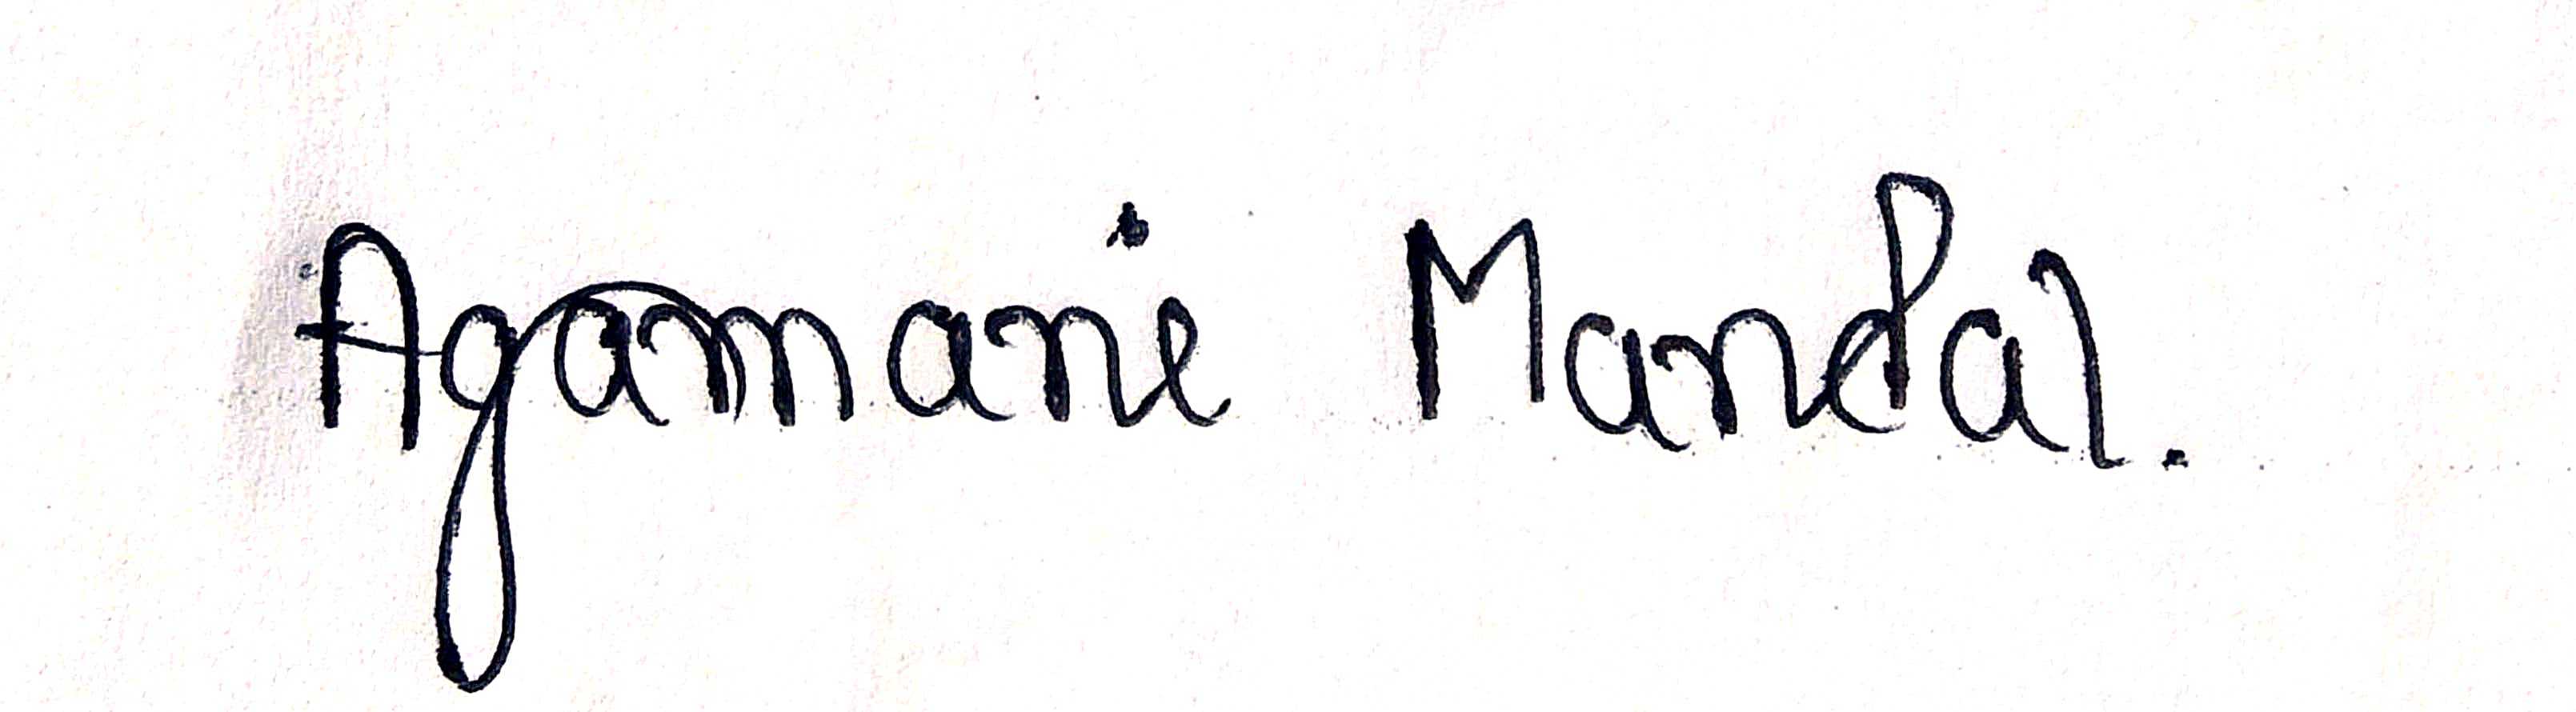 Agamani Mandal.